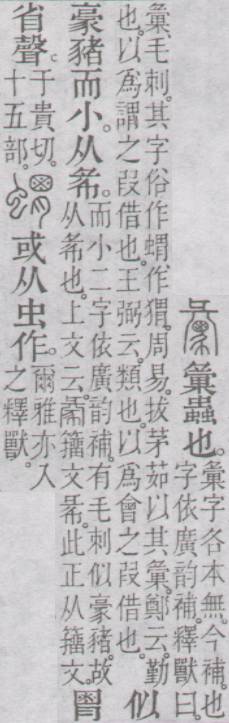 彙蟲也。
彙字各本無。今補。也
字依廣韵補。釋獸曰
彙。毛刺。其字俗作蝟。作猬。周易。拔茅茹以其彙。鄭云。勤
也。以爲謂之叚借也。王弼云。類也。以爲會之叚借也。
似
豪豬而小。从㣇。
而小二字依廣韵補。有毛刺似豪豬。故
从㣇也。上文云。籒文㣇。此正从籒文。
胃
省聲。
于貴切。
十五部。
或从虫作。
爾雅亦入
之釋獸。